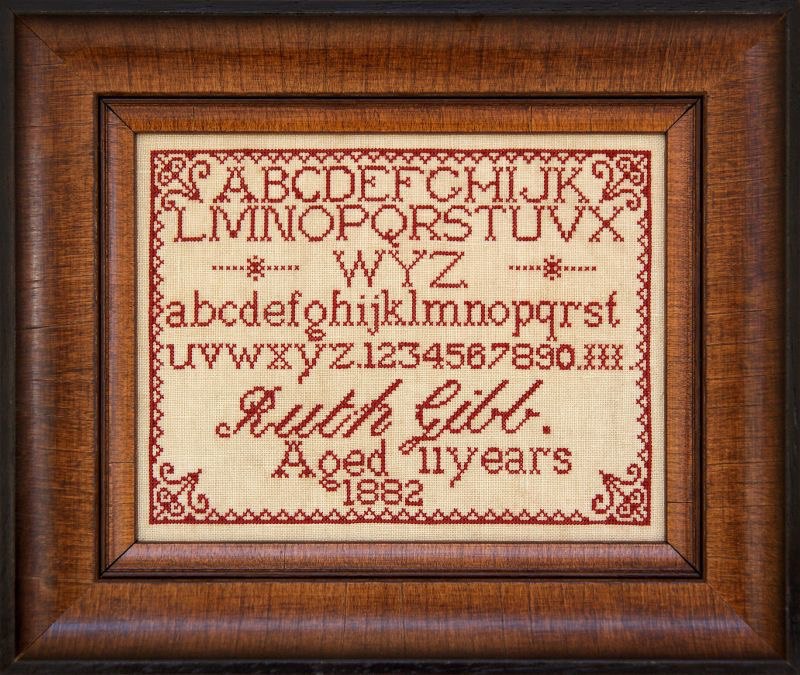 ABCDEFGHIJK
LMNOPQRSTUVX
WYZ
abcdefghijklmnopqrst
uvwxyz.1234567890.
Ruth Gibb.
Aged 11 years
1882